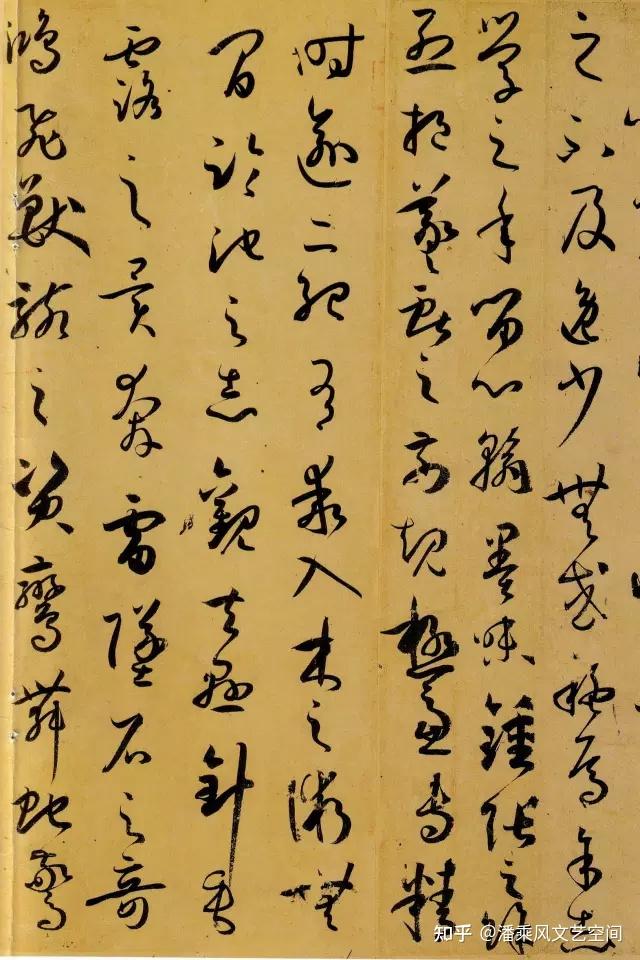 之不及逸少無或疑焉余志
學之年留心翰墨味鍾張之餘
烈挹羲獻之前規極慮專精
時逾二紀有乖入木之術無
間臨池之志觀夫懸針垂
露之異奔雷墜石之奇
鴻飛獸駭之資鸞舞蛇驚
知乎 @潘乘风文艺空间